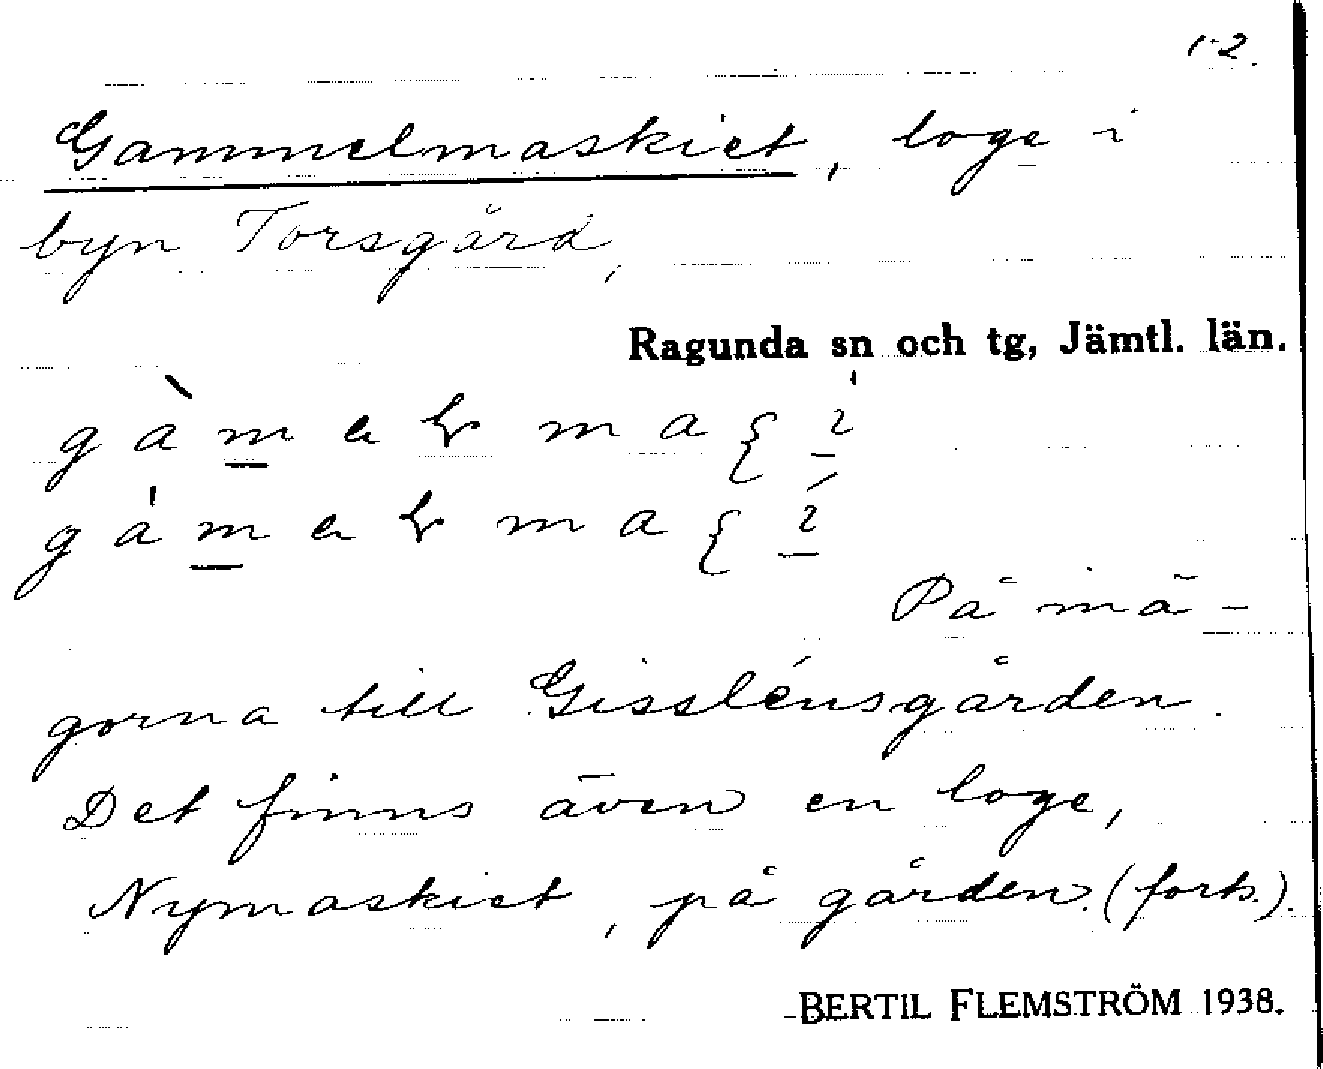 1-2.
Gammelmaskiet, loge i
byn Torsgård,
Ragunda sn och tg, Jämtl. län.
På mä-
gorna till Gisslénsgården.
Det finns även en loge,
Nymaskiet, på gården. (forts.).
BERTIL FLEMSTRÖM 1938.